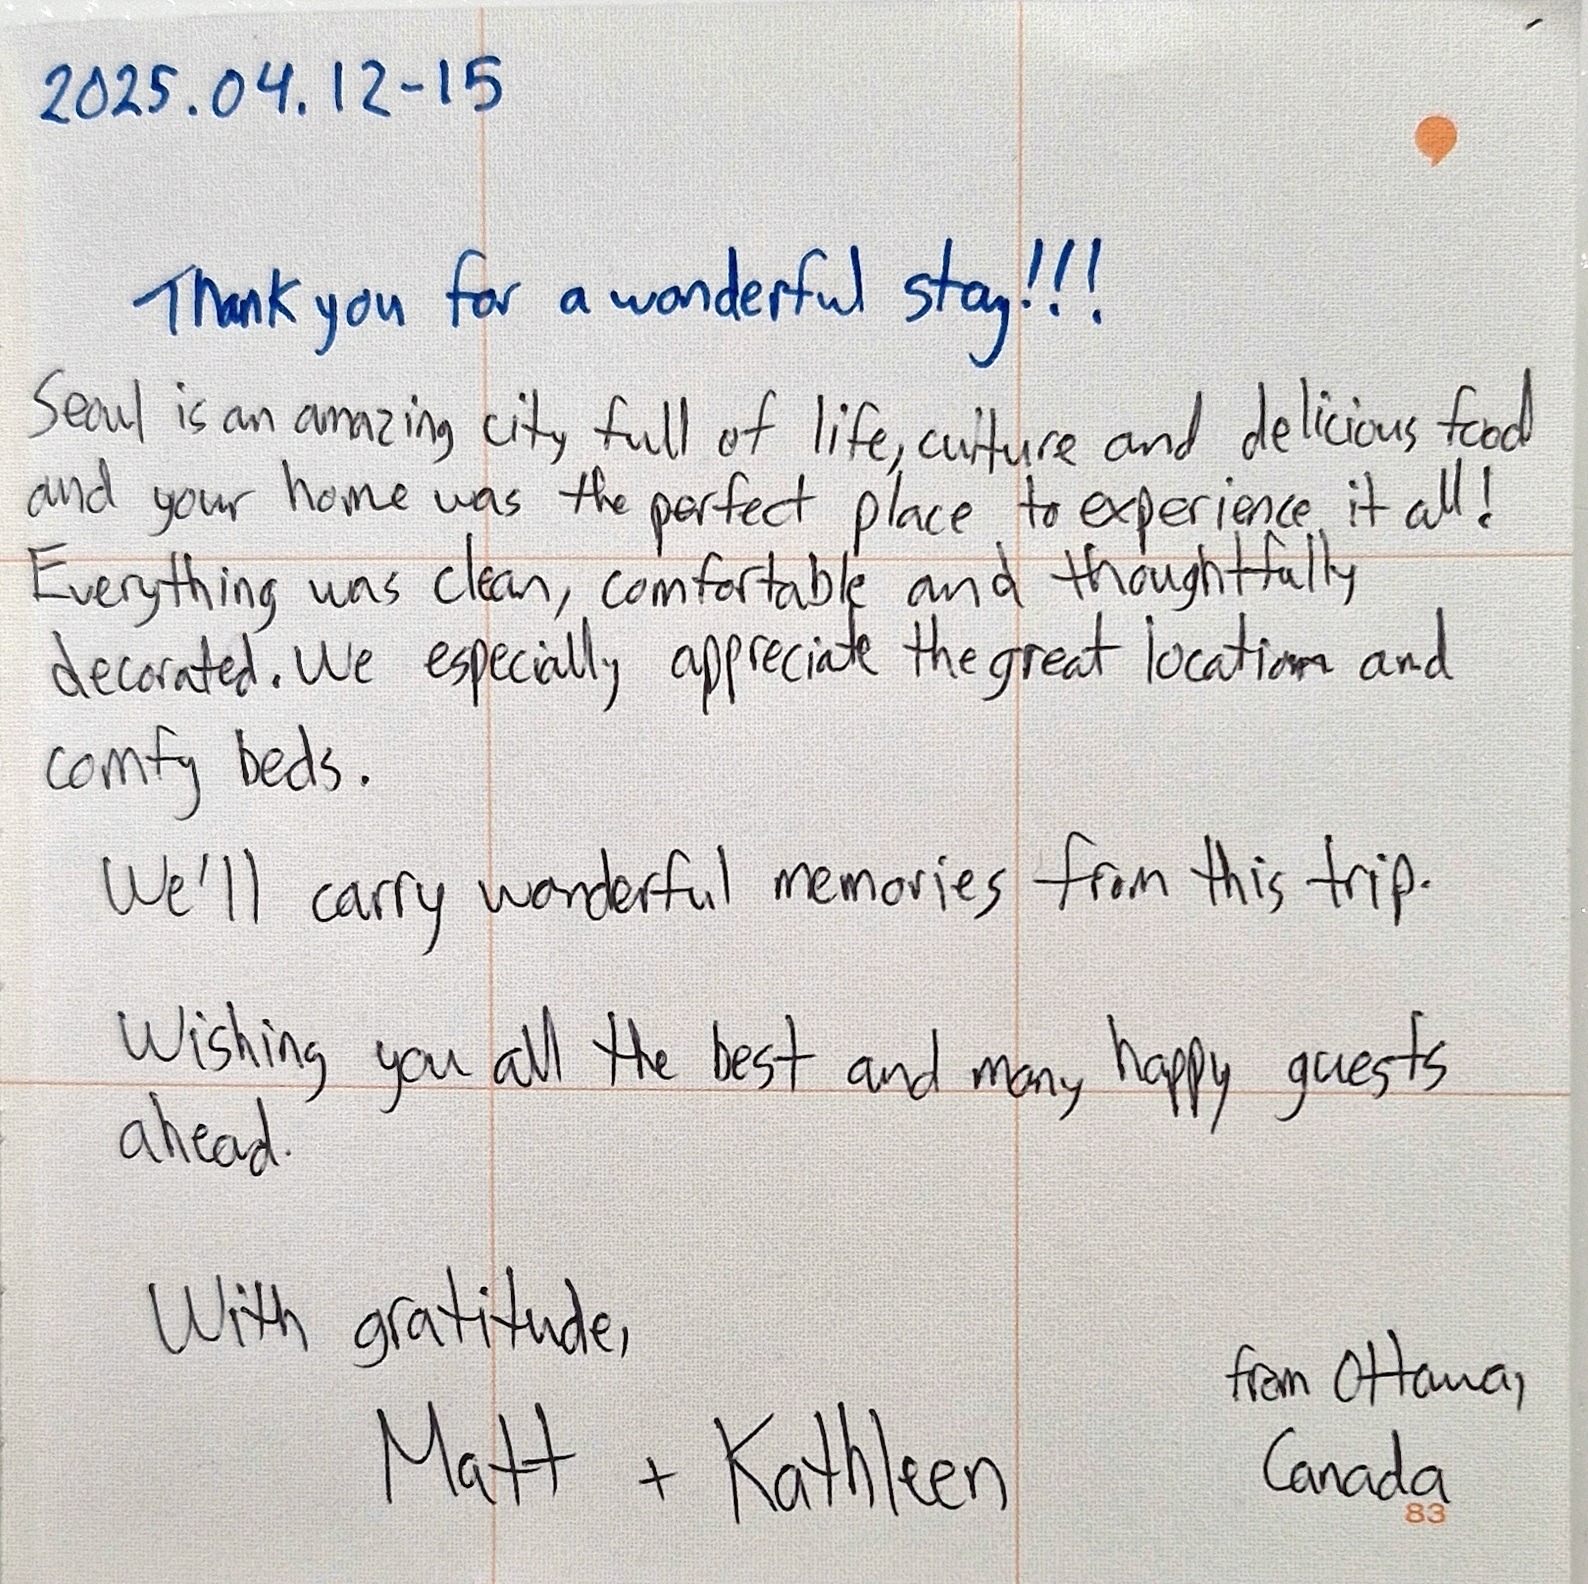 2025.04.12-15
Thank you for a wonderful stay!!!
Seoul is an amazing city full of life, culture and delicious food
and your home was the perfect place to experience it all!
Everything was clean, comfortable and thoughtfully
decorated. We especially appreciate the great location and
comfy beds.
We'll carry wonderful memories from this trip.
Wishing you all the best and many happy guests
ahead.
With gratitude,
Matt + Kathleen
from Ottawa,
Canada
83